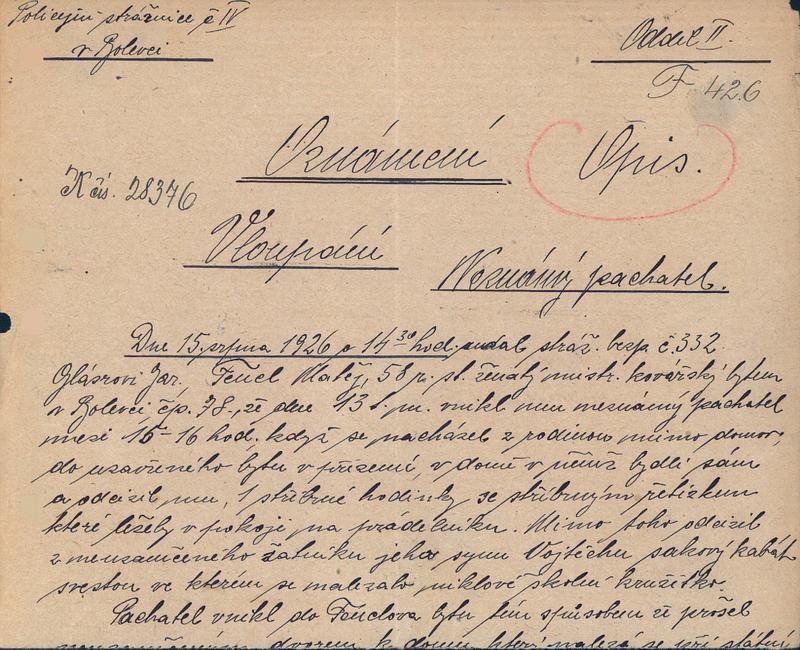 Policejní strážnice č IV
v Bolevci
Oddíl II.
F 426
Oznámení
Opis.
K čís. 28376
Vloupání
Neznámý pachatel.
Dne 15. srpna 1926 o 14 30 hod. udal stráž. bezp. č. 332
Glásrovi Jar., Fencl Matěj, 58 r. st. ženatý mistr. kovářský bytem
v Bolevci čp. 78., že dne 13 t. m. vnikl mu neznámý pachatel
mezi 15-16 hod. když se nacházel z rodinou mimo domov,
do uzavřeného bytu v přízemí, v domě v němž bydlí sám
a odcizil mu, 1 stříbrné hodinky se stříbrným řetízkem
které ležely v pokoji, na prádelníku. Mimo toho odcizil
z neuzamčeného šatníku jeho synu Vojtěchu sakový kabát
s vestou ve kterém se nalezalo niklové školní kružítko.
Pachatel vnikl do Fenclova bytu tím spůsobem že prošel
neuzamčeným dvorem k domu, který nalezá se při státní